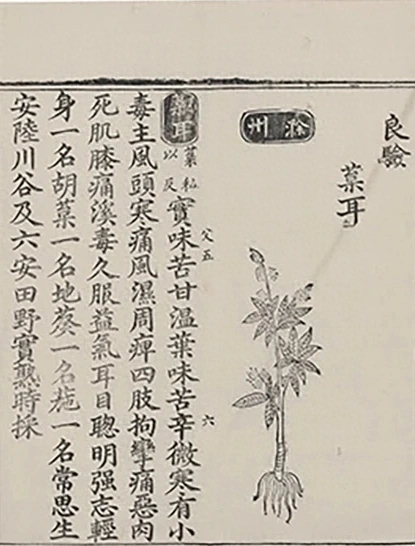 良驗
葈耳
滁州
葈耳
葈私
以反
實味苦甘溫葉味苦辛微寒有小
毒主風頭寒痛風濕周痺四肢拘攣痛惡肉
死肌膝痛溪毒久服益氣耳目聰明强志輕
身一名胡葈一名地葵一名葹一名常思生
安陸川谷及六安田野實熟時採